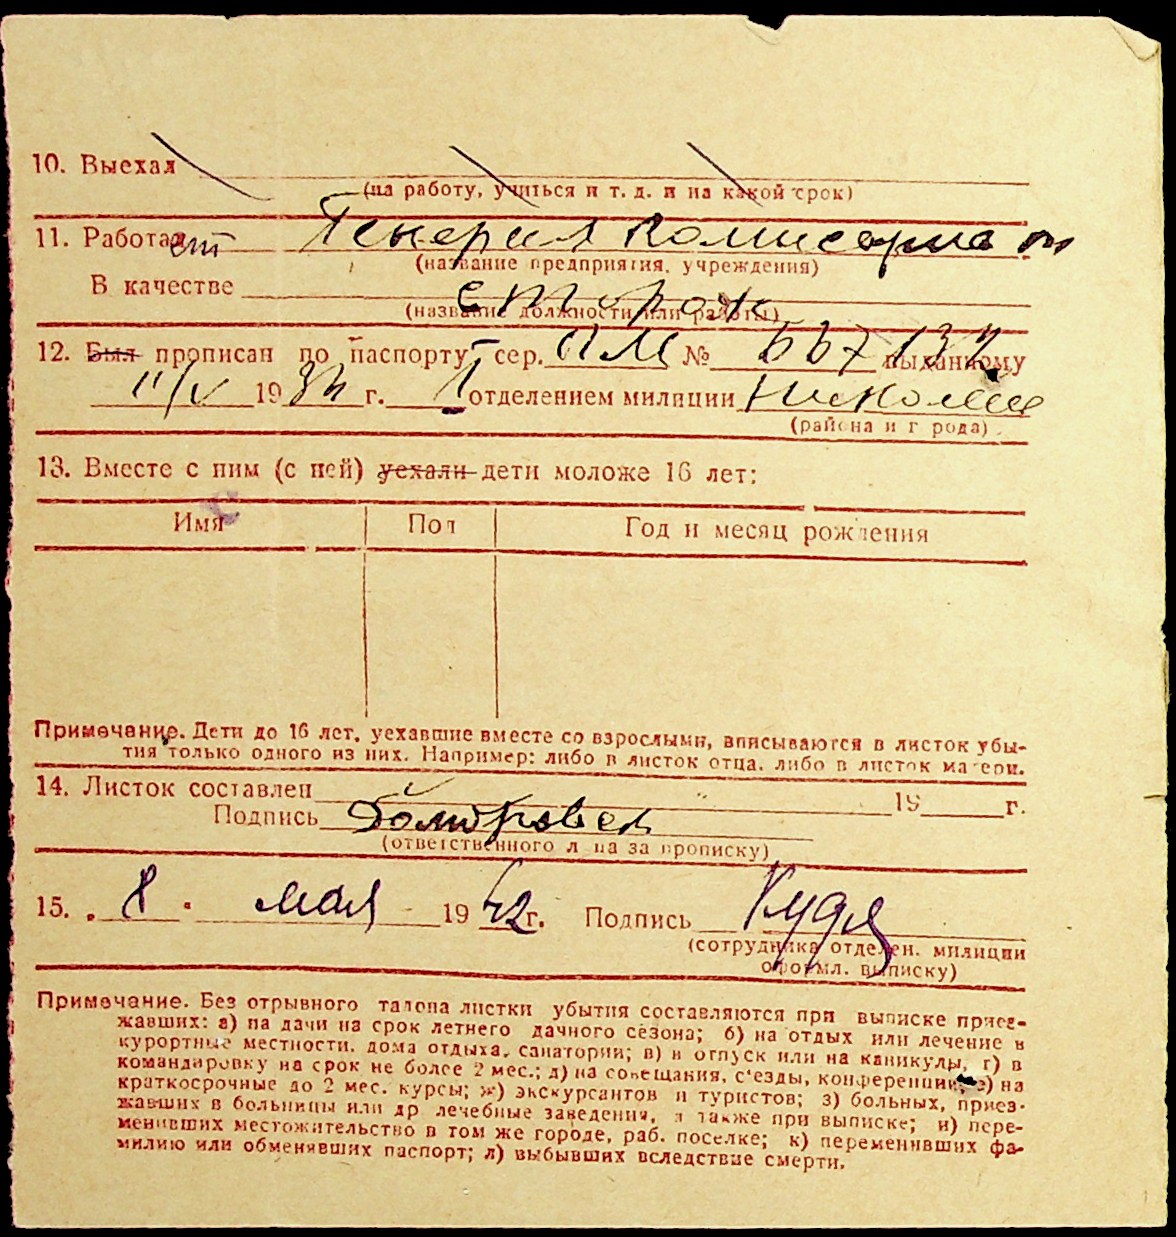 10. Выехал
(на работу, учиться и т. д. и на какой срок)
11. Работает Генерал Комисариат
(название предприятия, учреждения)
В качестве сторож
(название должности или работы)
12. Был прописан по паспорту сер. ПМ № выданному
11/V 19 г. 1 отделением милиции
(района и города)
13. Вместе с ним (с ней) уехали дети моложе 16 лет:
Имя Пол Год и месяц рождения
Примечание. Дети до 16 лет, уехавшие вместе со взрослыми, вписываются в листок убы-
тия только одного из них. Например: либо в листок отца, либо в листок матери.
14. Листок составлен 19 г.
Подпись
(ответственного лица за прописку)
15. 8 мая 1942 г. Подпись
(сотрудника отделен. милиции
оформл. выписку)
Примечание. Без отрывного талона листки убытия составляются при выписке приез-
жавших: а) на дачи на срок летнего дачного сезона; б) на отдых или лечение в
курортные местности, дома отдыха, санатории; в) в отпуск или на каникулы, г) в
командировку на срок не более 2 мес.; д) на совещания, с'езды, конференции; е) на
краткосрочные до 2 мес. курсы; ж) экскурсантов и туристов; з) больных, приез-
жавших в больницы или др лечебные заведения, а также при выписке; и) пере-
менивших местожительство в том же городе, раб. поселке; к) переменивших фа-
милию или обменявших паспорт; л) выбывших вследствие смерти.